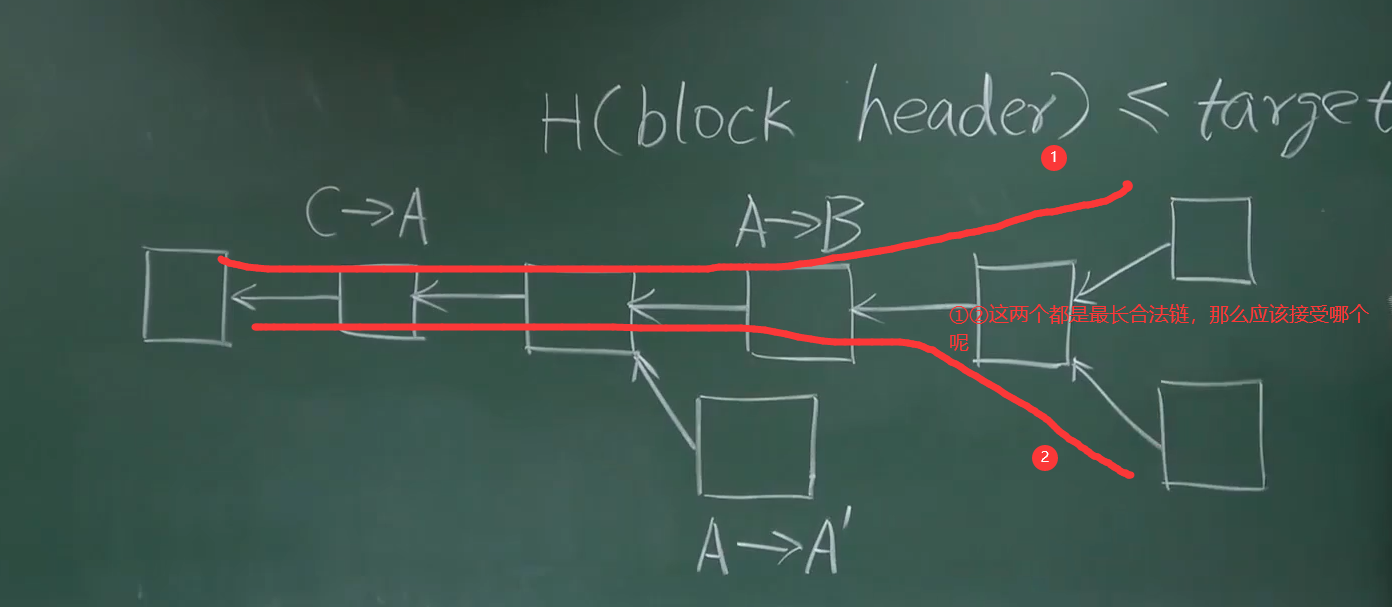 H(block header) ≤ target
1
C→A
A→B
①②这两个都是最长合法链，那么应该接受哪个
呢
2
A→A'